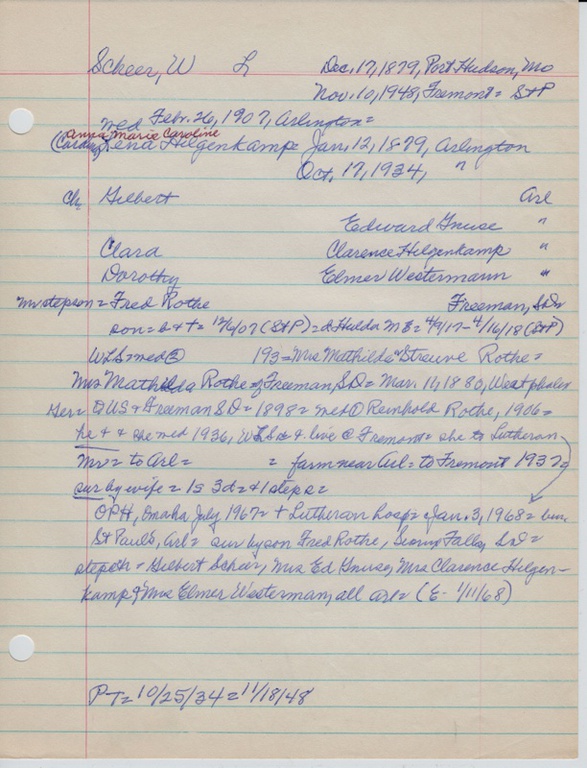 Scheer, W L Dec. 17, 1879, Port Hudson, Mo
Nov. 10, 1948, Fremont = St P
med Febr. 26, 1907, Arlington =
Anna Marie Caroline
Lena Hilgenkamp = Jan. 12, 1879, Arlington
Oct. 17, 1934, "
Ch Gilbert Arl
Edward Gnuse "
Clara Clarence Hilgenkamp "
Dorothy Elmer Westermann "
Mr. stepson = Fred Rothe Freeman, S.D.
son = b & + = 12/6/07 (St P) = d. Hulda M E = 4/9/17 - 4/16/18 (St P)
WLS = med ② 193 = Mrs "Mathilda" Struve Rothe =
Mrs Mathilda Rothe of Freeman, SD = Mar. 11, 1880, Westphalen
Ger = to US & Freeman SD = 1898 = med ① Reinhold Rothe, 1906 =
he + & she med 1936, WLS & live @ Fremont = she to Lutheran
Mr = to Arl = = farm near Arl = to Fremont 1937 =
sur by wife = 1s 3d = & 1 steps =
OPH, Omaha July 1967 = + Lutheran hosp = Jan. 3, 1968 = bur.
St Paul's, Arl = sur by son Fred Rothe, Sioux Falls, SD =
stepch = Gilbert Scheer, Mrs Ed Gnuse, Mrs Clarence Hilgen-
kamp & Mrs Elmer Westerman, all Arl = (E - 1/11/68)
PT = 10/25/34 = 11/18/48